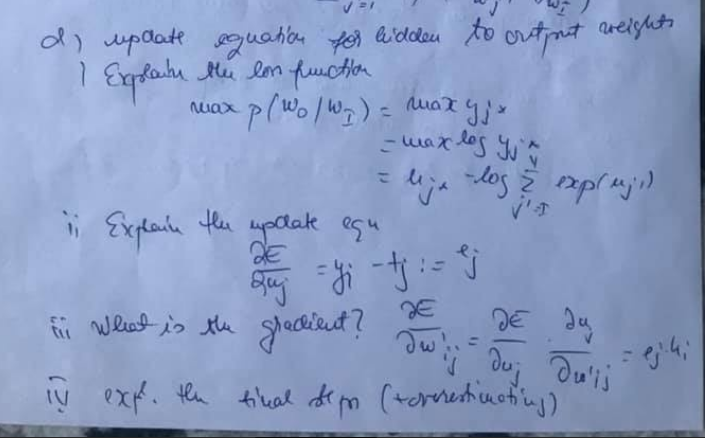 d) update equation for hidden to output weights
i Explain the loss function
max p(w_O/w_I) = max y_j*
= max log y_j*
= u_j* - log Σ_{j'=1}^{V} exp(u_j')
ii Explain the update equ
∂E/∂u_j = y_j - t_j := e_j
iii What is the gradient? ∂E/∂w'_ij = ∂E/∂u_j · ∂u_j/∂w'_ij = e_j·h_i
iv expl. the final step (+overestimating)